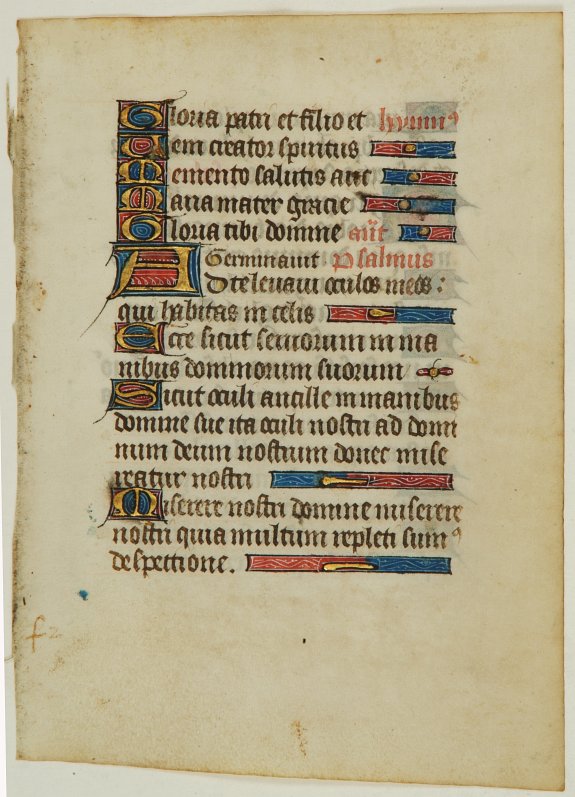 Gloria patri et filio et hymnꝰ
Ueni creator spiritus
Memento salutis auc
Maria mater gracie
Gloria tibi domine añt
Germinauit Psalmus
Ad te leuaui oculos meos :
qui habitas in celis
Ecce sicut seruorum in ma
nibus dominorum suorum
Sicut oculi ancille in manibus
domine sue ita oculi nostri ad domi
num deum nostrum donec mise
reatur nostri
Miserere nostri domine miserere
nostri quia multum repleti sumꝰ
despectione.
f 2